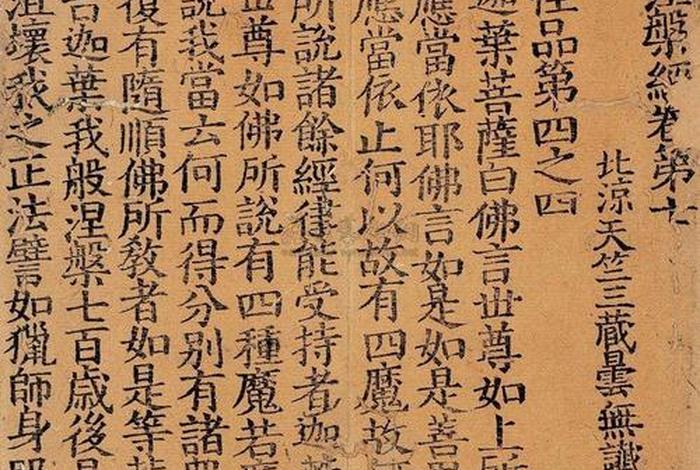 涅槃經卷第七
北涼天竺三藏曇無讖
性品第四之四
迦葉菩薩白佛言世尊如上所
應當依耶佛言如是如是善
應當依止何以故有四魔故
所說諸餘經律能受持者迦
世尊如佛所說有四種魔若
說我當云何而得分別有諸
復有隨順佛所教者如是等
告迦葉我般涅槃七百歲後
沮壞我之正法譬如獵師身